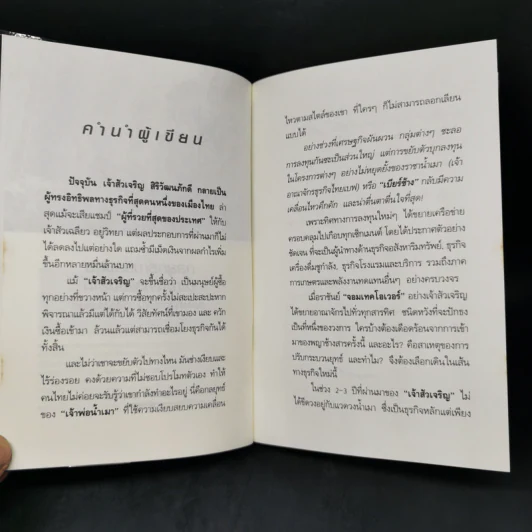 คำนำผู้เขียน
ปัจจุบัน เจ้าสัวเจริญ สิริวัฒนภักดี กลายเป็น
ผู้ทรงอิทธิพลทางธุรกิจที่สุดคนหนึ่งของเมืองไทย ล่า
สุดแม้จะเสียแชมป์ "ผู้ที่รวยที่สุดของประเทศ" ให้กับ
เจ้าสัวเฉลียว อยู่วิทยา แต่ผลประกอบการที่ผ่านมาก็ไม่
ได้ลดลงไปแต่อย่างใด แถมซ้ำมีเม็ดเงินจากผลกำไรเพิ่ม
ขึ้นอีกหลายหมื่นล้านบาท
แม้ "เจ้าสัวเจริญ" จะขึ้นชื่อว่า เป็นมนุษย์ผู้ซื้อ
ทุกอย่างที่ขวางหน้า แต่การซื้อทุกครั้งไม่สะเปะสะปะหาก
พิจารณาแล้วมีแต่ได้กับได้ วิสัยทัศน์ที่เขามอง และ ควัก
เงินซื้อเข้ามา ล้วนแล้วแต่สามารถเชื่อมโยงธุรกิจกันได้
ทั้งสิ้น
และไม่ว่าเขาจะขยับตัวไปทางไหน มันช่างเงียบและ
ไร้ร่องรอย คงด้วยความที่ไม่ชอบโปรโมทตัวเอง ทำให้
คนไทยไม่ค่อยจะรับรู้ว่าเขากำลังทำอะไรอยู่ นี่คือกลยุทธ์
ของ "เจ้าพ่อน้ำเมา" ที่ใช้ความเงียบสยบความเคลื่อน
ไหวตามสไตล์ของเขา ที่ใครๆ ก็ไม่สามารถลอกเลียน
แบบได้
อย่างช่วงที่เศรษฐกิจผันผวน กลุ่มต่างๆ ชะลอ
การลงทุนกันซะเป็นส่วนใหญ่ แต่การขยับตัวบุกลงทุน
ในโครงการต่างๆ อย่างไม่หยุดยั้งของราชาน้ำเมา (เจ้า
อาณาจักรธุรกิจไทยเบฟ) หรือ "เบียร์ช้าง" กลับมีความ
เคลื่อนไหวคึกคัก และน่าตื่นตาตื่นใจที่สุด!
เพราะทิศทางการลงทุนใหม่ๆ ได้ขยายเครือข่าย
ครอบคลุมไปเกือบทุกเซ็กเมนต์ โดยได้ประกาศตัวอย่าง
ชัดเจน ที่จะเป็นผู้นำทางด้านธุรกิจอสังหาริมทรัพย์, ธุรกิจ
เครื่องดื่มชูกำลัง, ธุรกิจโรงแรมและบริการ รวมถึงภาค
การเกษตรและพลังงานทดแทนอื่นๆ อย่างครบวงจร
เมื่อราชันย์ "จอมเทคโอเวอร์" อย่างเจ้าสัวเจริญ
ได้ขยายอาณาจักรไปทั่วทุกสารทิศ ชนิดหวังที่จะปักธง
เป็นที่หนึ่งของวงการ ใครบ้างต้องเดือดร้อนจากการเข้า
มาของพญาช้างสารครั้งนี้ และอะไร? คือสาเหตุของการ
ปรับกระบวนยุทธ์ และทำไม? จึงต้องเลือกเดินในเส้น
ทางธุรกิจใหม่นี้
ในช่วง 2-3 ปีที่ผ่านมาของ "เจ้าสัวเจริญ" ไม่
ได้ขีดวงอยู่กับแวดวงน้ำเมา ซึ่งเป็นธุรกิจหลักแต่เพียง